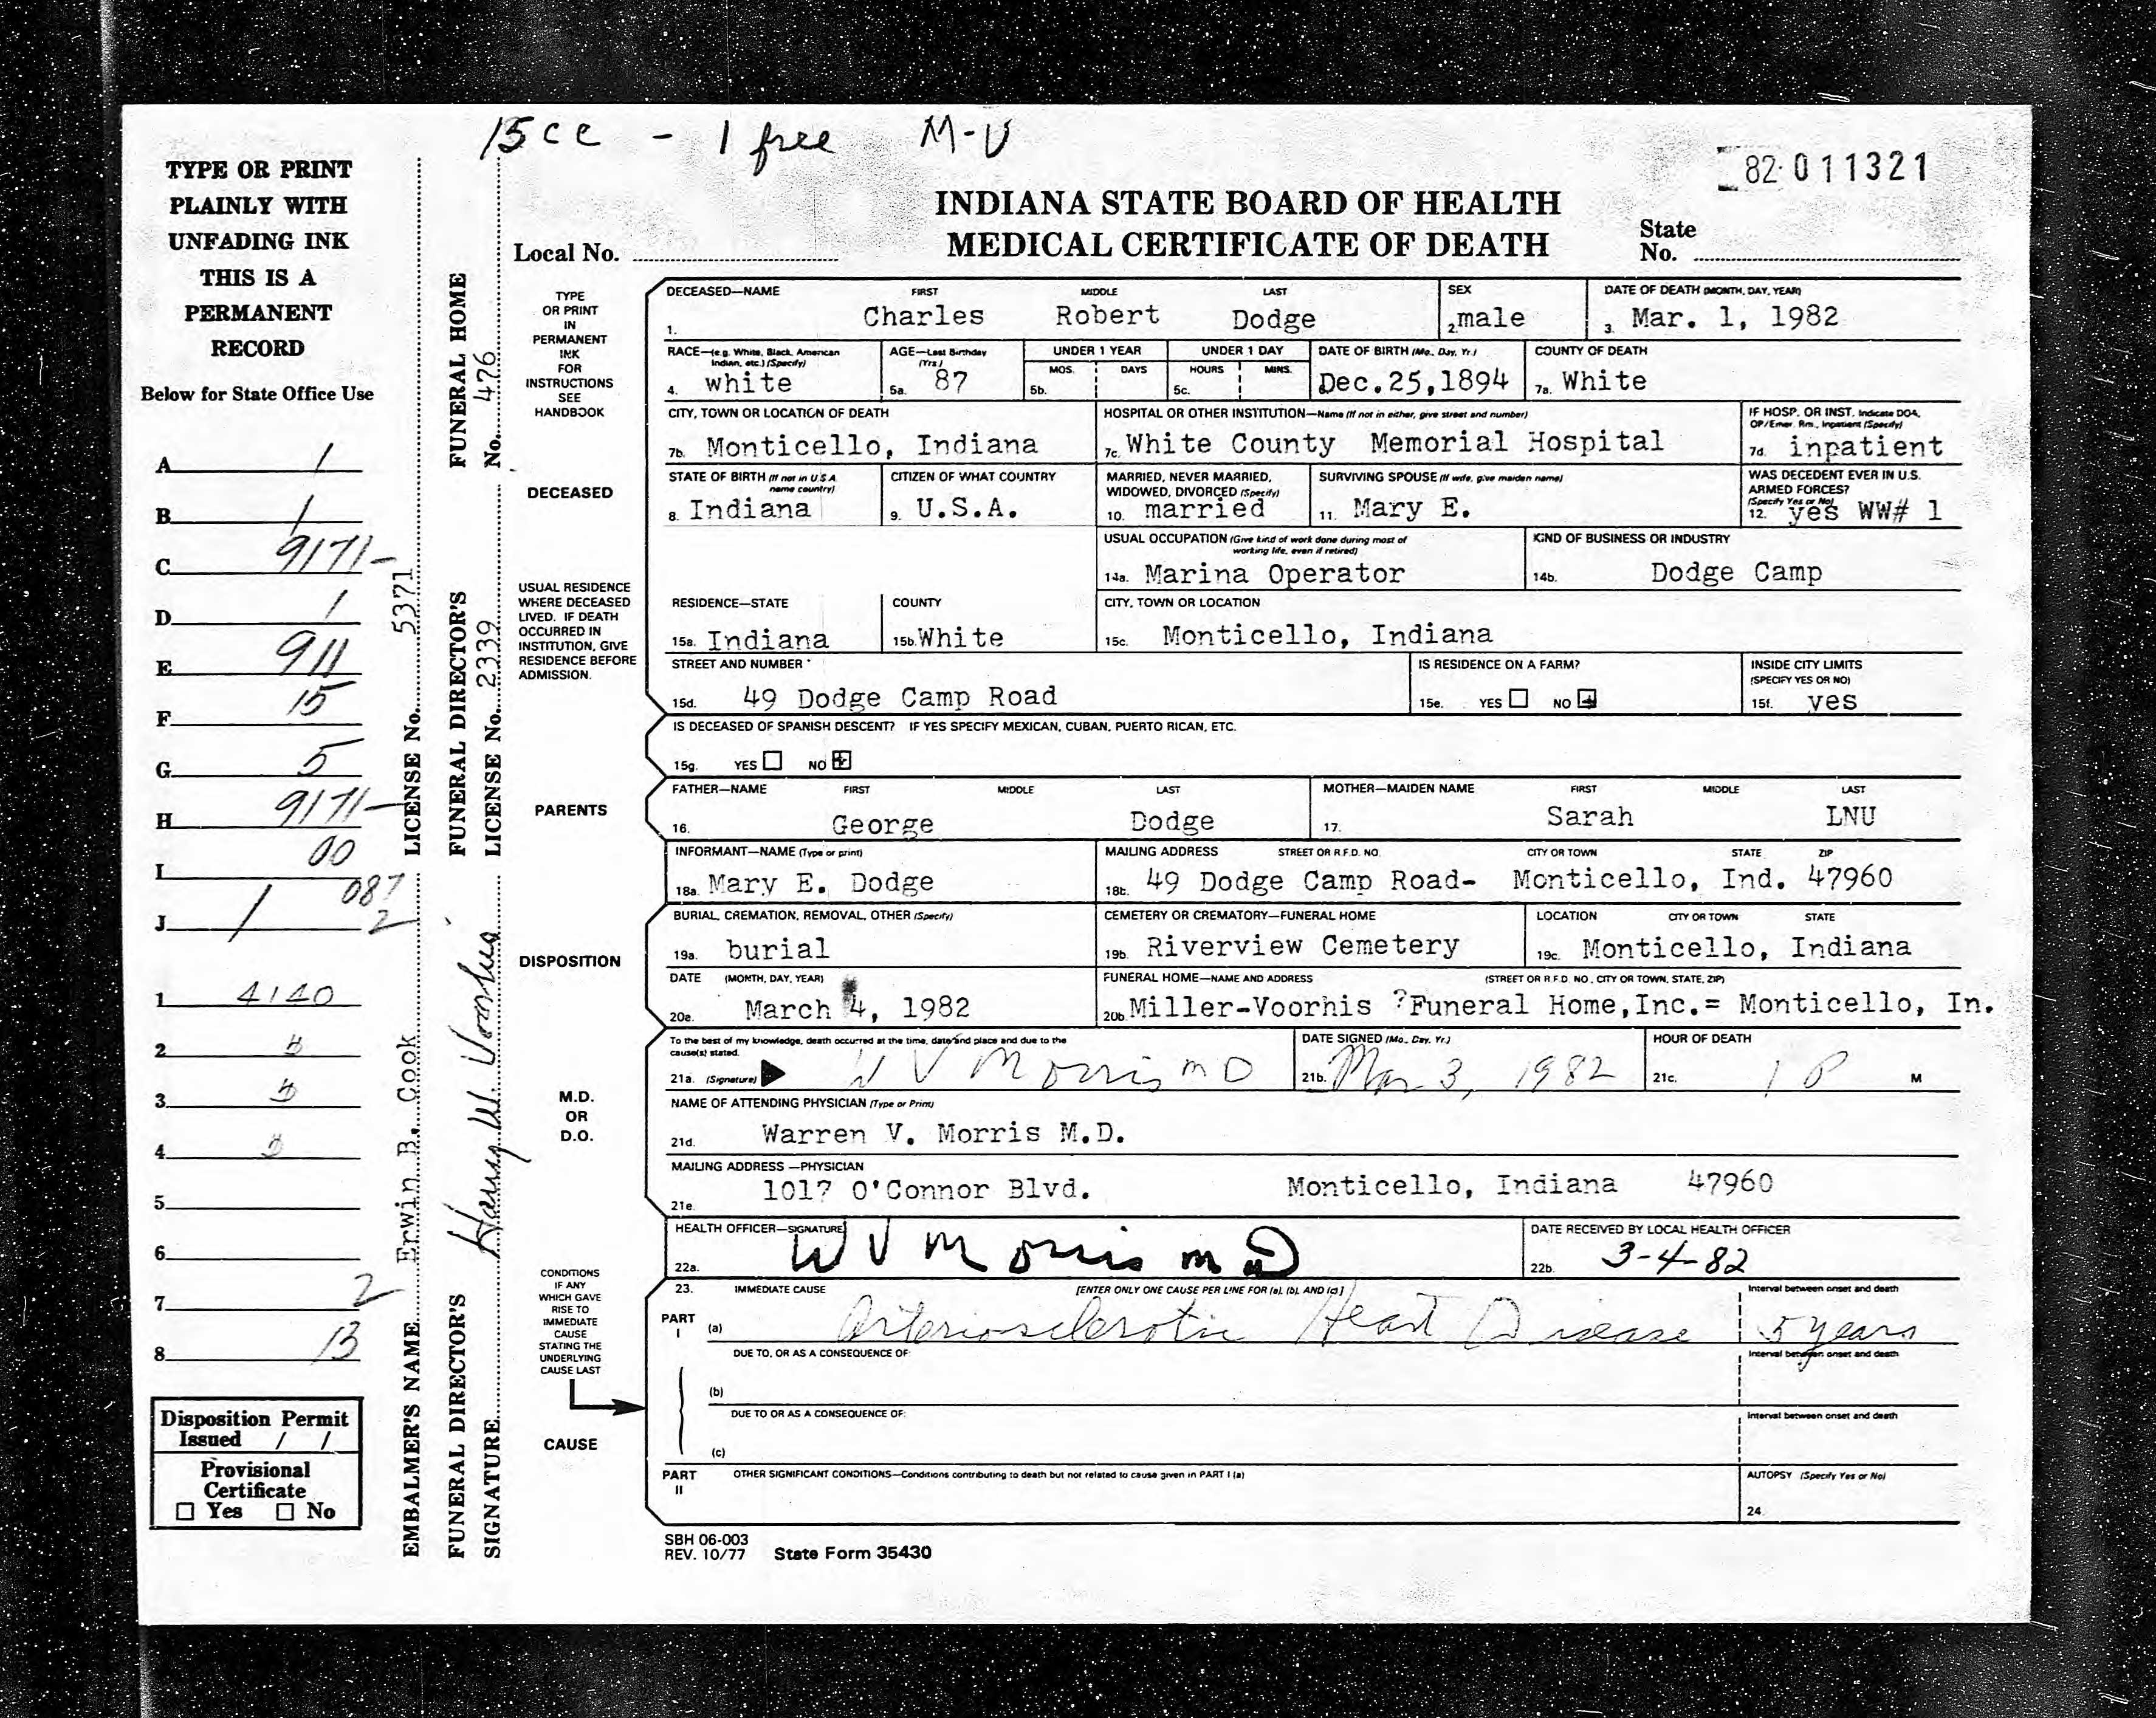 15cc - 1 free M-V
82-011321
TYPE OR PRINT
PLAINLY WITH
UNFADING INK
THIS IS A
PERMANENT
RECORD
Below for State Office Use
A 1
B 1
C 9171-
D 1
E 911
F 15
G 5
H 9171-
I 00
087
J 1 2
1 4140
2
3
4
5
6
7 2
8 13
Disposition Permit
Issued / /
Provisional
Certificate
☐ Yes ☐ No
EMBALMER'S NAME Erwin B. Cook LICENSE No. 5371
FUNERAL DIRECTOR'S FUNERAL DIRECTOR'S FUNERAL HOME
SIGNATURE Harry W. Voorhis LICENSE No. 2339 No. 476
INDIANA STATE BOARD OF HEALTH
MEDICAL CERTIFICATE OF DEATH
Local No.
State
No.
TYPE
OR PRINT
IN
PERMANENT
INK
FOR
INSTRUCTIONS
SEE
HANDBOOK
DECEASED
USUAL RESIDENCE
WHERE DECEASED
LIVED. IF DEATH
OCCURRED IN
INSTITUTION, GIVE
RESIDENCE BEFORE
ADMISSION.
PARENTS
DISPOSITION
M.D.
OR
D.O.
CONDITIONS
IF ANY
WHICH GAVE
RISE TO
IMMEDIATE
CAUSE
STATING THE
UNDERLYING
CAUSE LAST
CAUSE
DECEASED—NAME FIRST MIDDLE LAST SEX DATE OF DEATH (MONTH, DAY, YEAR)
1. Charles Robert Dodge 2. male 3. Mar. 1, 1982
RACE—(e.g. White, Black, American Indian, etc.) (Specify) AGE—Last Birthday (Yrs.) UNDER 1 YEAR UNDER 1 DAY DATE OF BIRTH (Mo., Day, Yr.) COUNTY OF DEATH
MOS. DAYS HOURS MINS.
4. white 5a. 87 5b. 5c. Dec.25,1894 7a. White
CITY, TOWN OR LOCATION OF DEATH HOSPITAL OR OTHER INSTITUTION—Name (If not in either, give street and number) IF HOSP. OR INST. Indicate DOA, OP/Emer. Rm., Inpatient (Specify)
7b. Monticello, Indiana 7c. White County Memorial Hospital 7d. inpatient
STATE OF BIRTH (If not in U.S.A. name country) CITIZEN OF WHAT COUNTRY MARRIED, NEVER MARRIED, WIDOWED, DIVORCED (Specify) SURVIVING SPOUSE (If wife, give maiden name) WAS DECEDENT EVER IN U.S. ARMED FORCES? (Specify Yes or No)
8. Indiana 9. U.S.A. 10. married 11. Mary E. 12. yes WW# 1
USUAL OCCUPATION (Give kind of work done during most of working life, even if retired) KIND OF BUSINESS OR INDUSTRY
14a. Marina Operator 14b. Dodge Camp
RESIDENCE—STATE COUNTY CITY, TOWN OR LOCATION
15a. Indiana 15b. White 15c. Monticello, Indiana
STREET AND NUMBER IS RESIDENCE ON A FARM? INSIDE CITY LIMITS (SPECIFY YES OR NO)
15d. 49 Dodge Camp Road 15e. YES ☐ NO ☒ 15f. yes
IS DECEASED OF SPANISH DESCENT? IF YES SPECIFY MEXICAN, CUBAN, PUERTO RICAN, ETC.
15g. YES ☐ NO ☒
FATHER—NAME FIRST MIDDLE LAST MOTHER—MAIDEN NAME FIRST MIDDLE LAST
16. George Dodge 17. Sarah LNU
INFORMANT—NAME (Type or print) MAILING ADDRESS STREET OR R.F.D. NO. CITY OR TOWN STATE ZIP
18a. Mary E. Dodge 18b. 49 Dodge Camp Road- Monticello, Ind. 47960
BURIAL, CREMATION, REMOVAL, OTHER (Specify) CEMETERY OR CREMATORY—FUNERAL HOME LOCATION CITY OR TOWN STATE
19a. burial 19b. Riverview Cemetery 19c. Monticello, Indiana
DATE (MONTH, DAY, YEAR) FUNERAL HOME—NAME AND ADDRESS (STREET OR R.F.D. NO., CITY OR TOWN, STATE, ZIP)
20a. March 4, 1982 20b. Miller-Voorhis ?Funeral Home,Inc.= Monticello, In.
To the best of my knowledge, death occurred at the time, date and place and due to the cause(s) stated. DATE SIGNED (Mo., Day, Yr.) HOUR OF DEATH
21a. (Signature) W V Morris MD 21b. Mar 3, 1982 21c. 1 P M
NAME OF ATTENDING PHYSICIAN (Type or Print)
21d. Warren V. Morris M.D.
MAILING ADDRESS—PHYSICIAN
21e. 1017 O'Connor Blvd. Monticello, Indiana 47960
HEALTH OFFICER—SIGNATURE DATE RECEIVED BY LOCAL HEALTH OFFICER
22a. W V Morris MD 22b. 3-4-82
23. IMMEDIATE CAUSE [ENTER ONLY ONE CAUSE PER LINE FOR (a), (b), AND (c)] Interval between onset and death
PART I (a) Arteriosclerotic Heart Disease 5 years
DUE TO, OR AS A CONSEQUENCE OF: Interval between onset and death
(b)
DUE TO OR AS A CONSEQUENCE OF: Interval between onset and death
(c)
PART II OTHER SIGNIFICANT CONDITIONS—Conditions contributing to death but not related to cause given in PART I (a) AUTOPSY (Specify Yes or No)
24.
SBH 06-003
REV. 10/77 State Form 35430